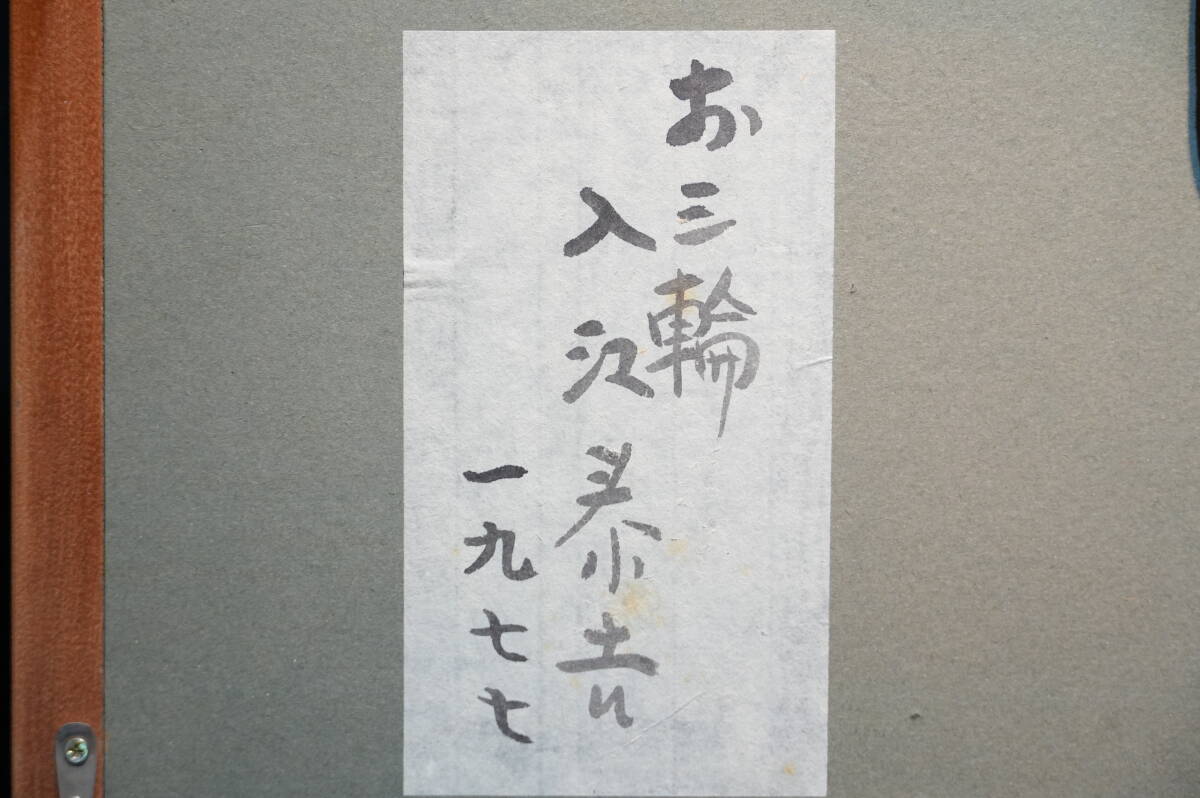 お三輪
入江泰吉
一九七七